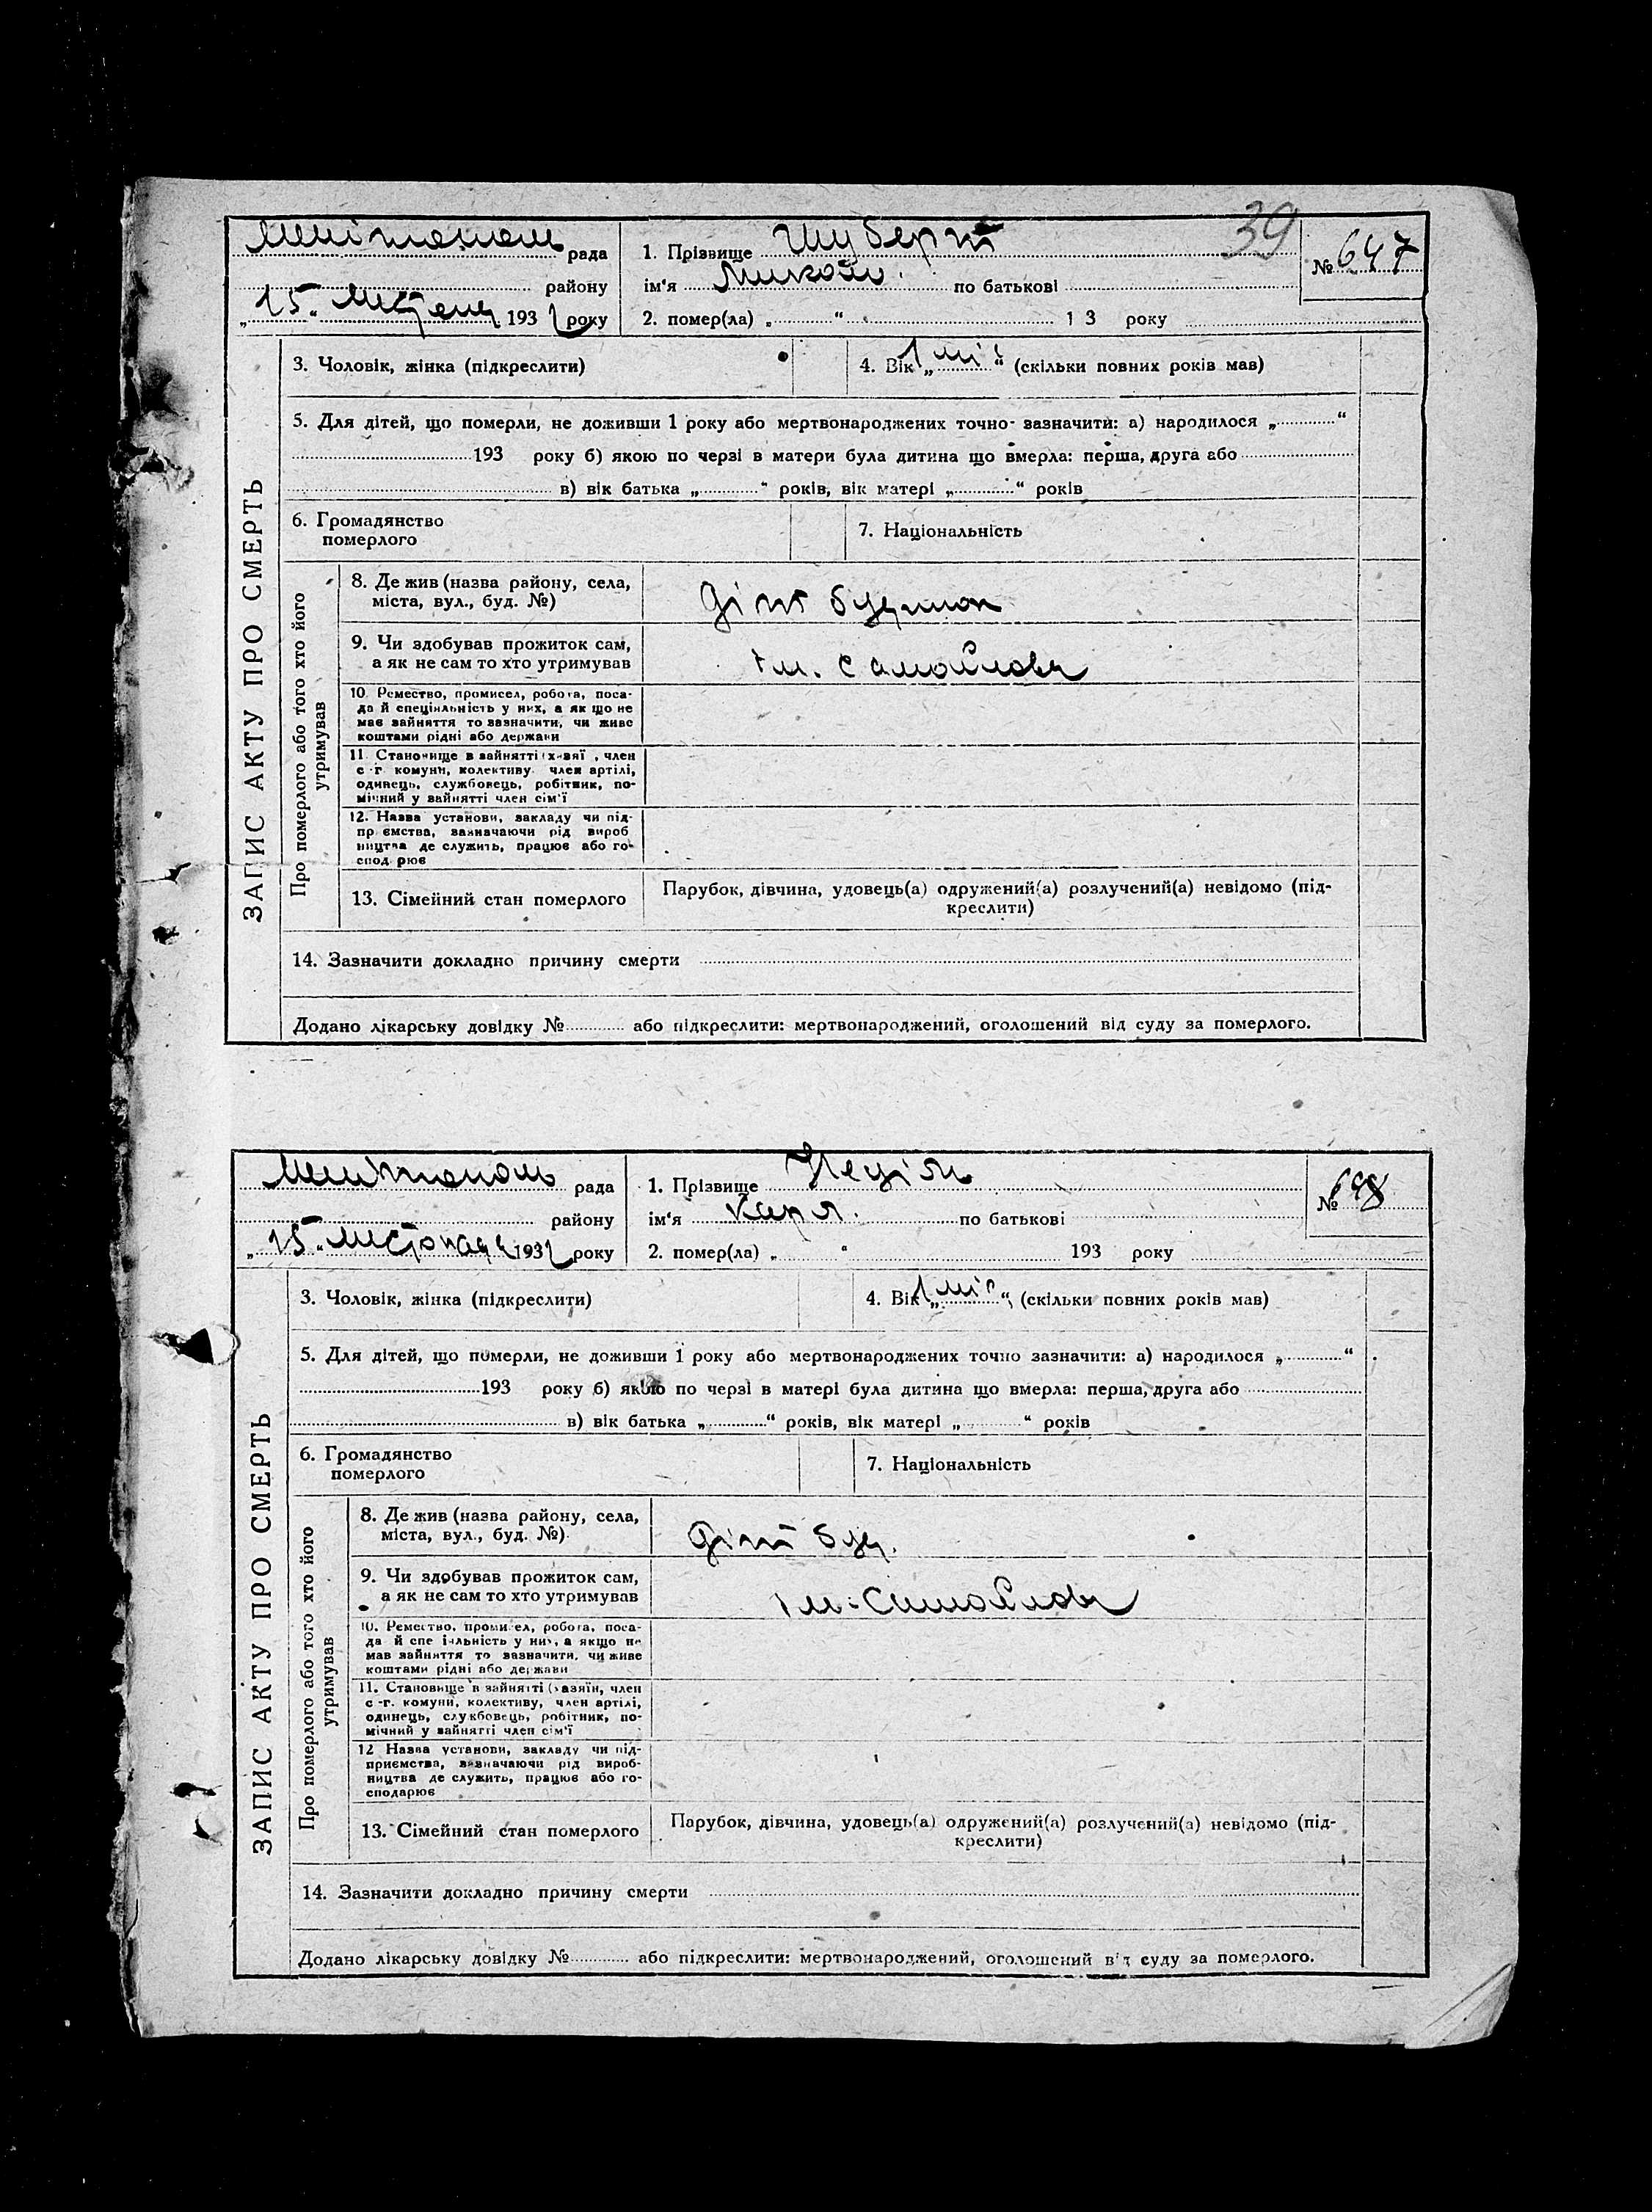 39
Мелітополь рада
1. Прізвище Шуберт
№ 647
району
ім'я Микола по батькові
„15“ 193 2 року
2. помер(ла) „ “ 1 3 року
3. Чоловік, жінка (підкреслити)
4. Вік „1 мі“ (скільки повних років мав)
5. Для дітей, що померли, не доживши 1 року або мертвонароджених точно зазначити: а) народилося „ “
193 року б) якою по черзі в матери була дитина що вмерла: перша, друга або
в) вік батька „ “ років, вік матері „ “ років
6. Громадянство
померлого
7. Національність
ЗАПИС АКТУ ПРО СМЕРТЬ
Про померлого або того хто його
утримував
8. Де жив (назва району, села,
міста, вул., буд. №)
Діт будинок
9. Чи здобував прожиток сам,
а як не сам то хто утримував
ім. Самойлова
10 Ремество, промисел, робота, поса-
да й спеціяльність у них, а як що не
має зайняття то зазначити, чи живе
коштами рідні або держави
11. Становище в зайнятті (х-вяї , член
с -г комуни, колективу член артілі,
одинець, службовець, робітник, по-
мічний у зайнятті член сім'ї
12. Назва установи, закладу чи під-
пр ємства, зазначаючи рід вироб
ництва де служить, працює або го-
спод рює
13. Сімейний стан померлого
Парубок, дівчина, удовець(а) одружений(а) розлучений(а) невідомо (під-
креслити)
14. Зазначити докладно причину смерти
Додано лікарську довідку № або підкреслити: мертвонароджений, оголошений від суду за померлого.
Мелітополь рада
1. Прізвище
№ 648
району
ім'я Карл. по батькові
„15“ листопада 1932 року
2. помер(ла) „ “ 193 року
3. Чоловік, жінка (підкреслити)
4. Вік „1 мі“ (скільки повних років мав)
5. Для дітей, що померли, не доживши 1 року або мертвонароджених точно зазначити: а) народилося „ “
193 року б) якою по черзі в матері була дитина що вмерла: перша, друга або
в) вік батька „ “ років, вік матері „ “ років
6. Громадянство
померлого
7. Національність
ЗАПИС АКТУ ПРО СМЕРТЬ
Про померлого або того хто його
утримував
8. Де жив (назва району, села,
міста, вул., буд. №)
Діт буд.
9. Чи здобував прожиток сам,
а як не сам то хто утримував
ім. Самойлова
10. Ремество, промисел, робота, поса-
да й спе іяльність у них, а якщо не
мав зайняття то зазначити, чи живе
коштами рідні або держави
11. Становище в зайнятті (хазяїн, член
с -г. комуни, колективу, член артілі,
одинець, службовець, робітник, по-
мічний у зайнятті член сім'ї
12 Назва установи, закладу чи під-
приємства, зазначаючи рід вироб-
ництва де служить, працює або го-
сподарює
13. Сімейний стан померлого
Парубок, дівчина, удовець(а) одружений(а) розлучений(а) невідомо (під-
креслити)
14. Зазначити докладно причину смерти
Додано лікарську довідку № або підкреслити: мертвонароджений, оголошений від суду за померлого.